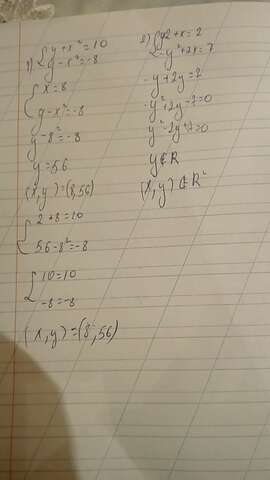 1) { y + x² = 10
y - x² = -8
{ x = 8
y - x² = -8
y - 8² = -8
y = 56
(x, y) = (8, 56)
{ 2 + 8 = 10
56 - 8² = -8
{ 10 = 10
-8 = -8
(x, y) = (8, 56)
2) { y2 + x = 2
-y² + 2x = 7
-y + 2y = 7
-y² + 2y - 7 = 0
y² - 2y + 7 = 0
y ∉ R
(x, y) ∉ R²